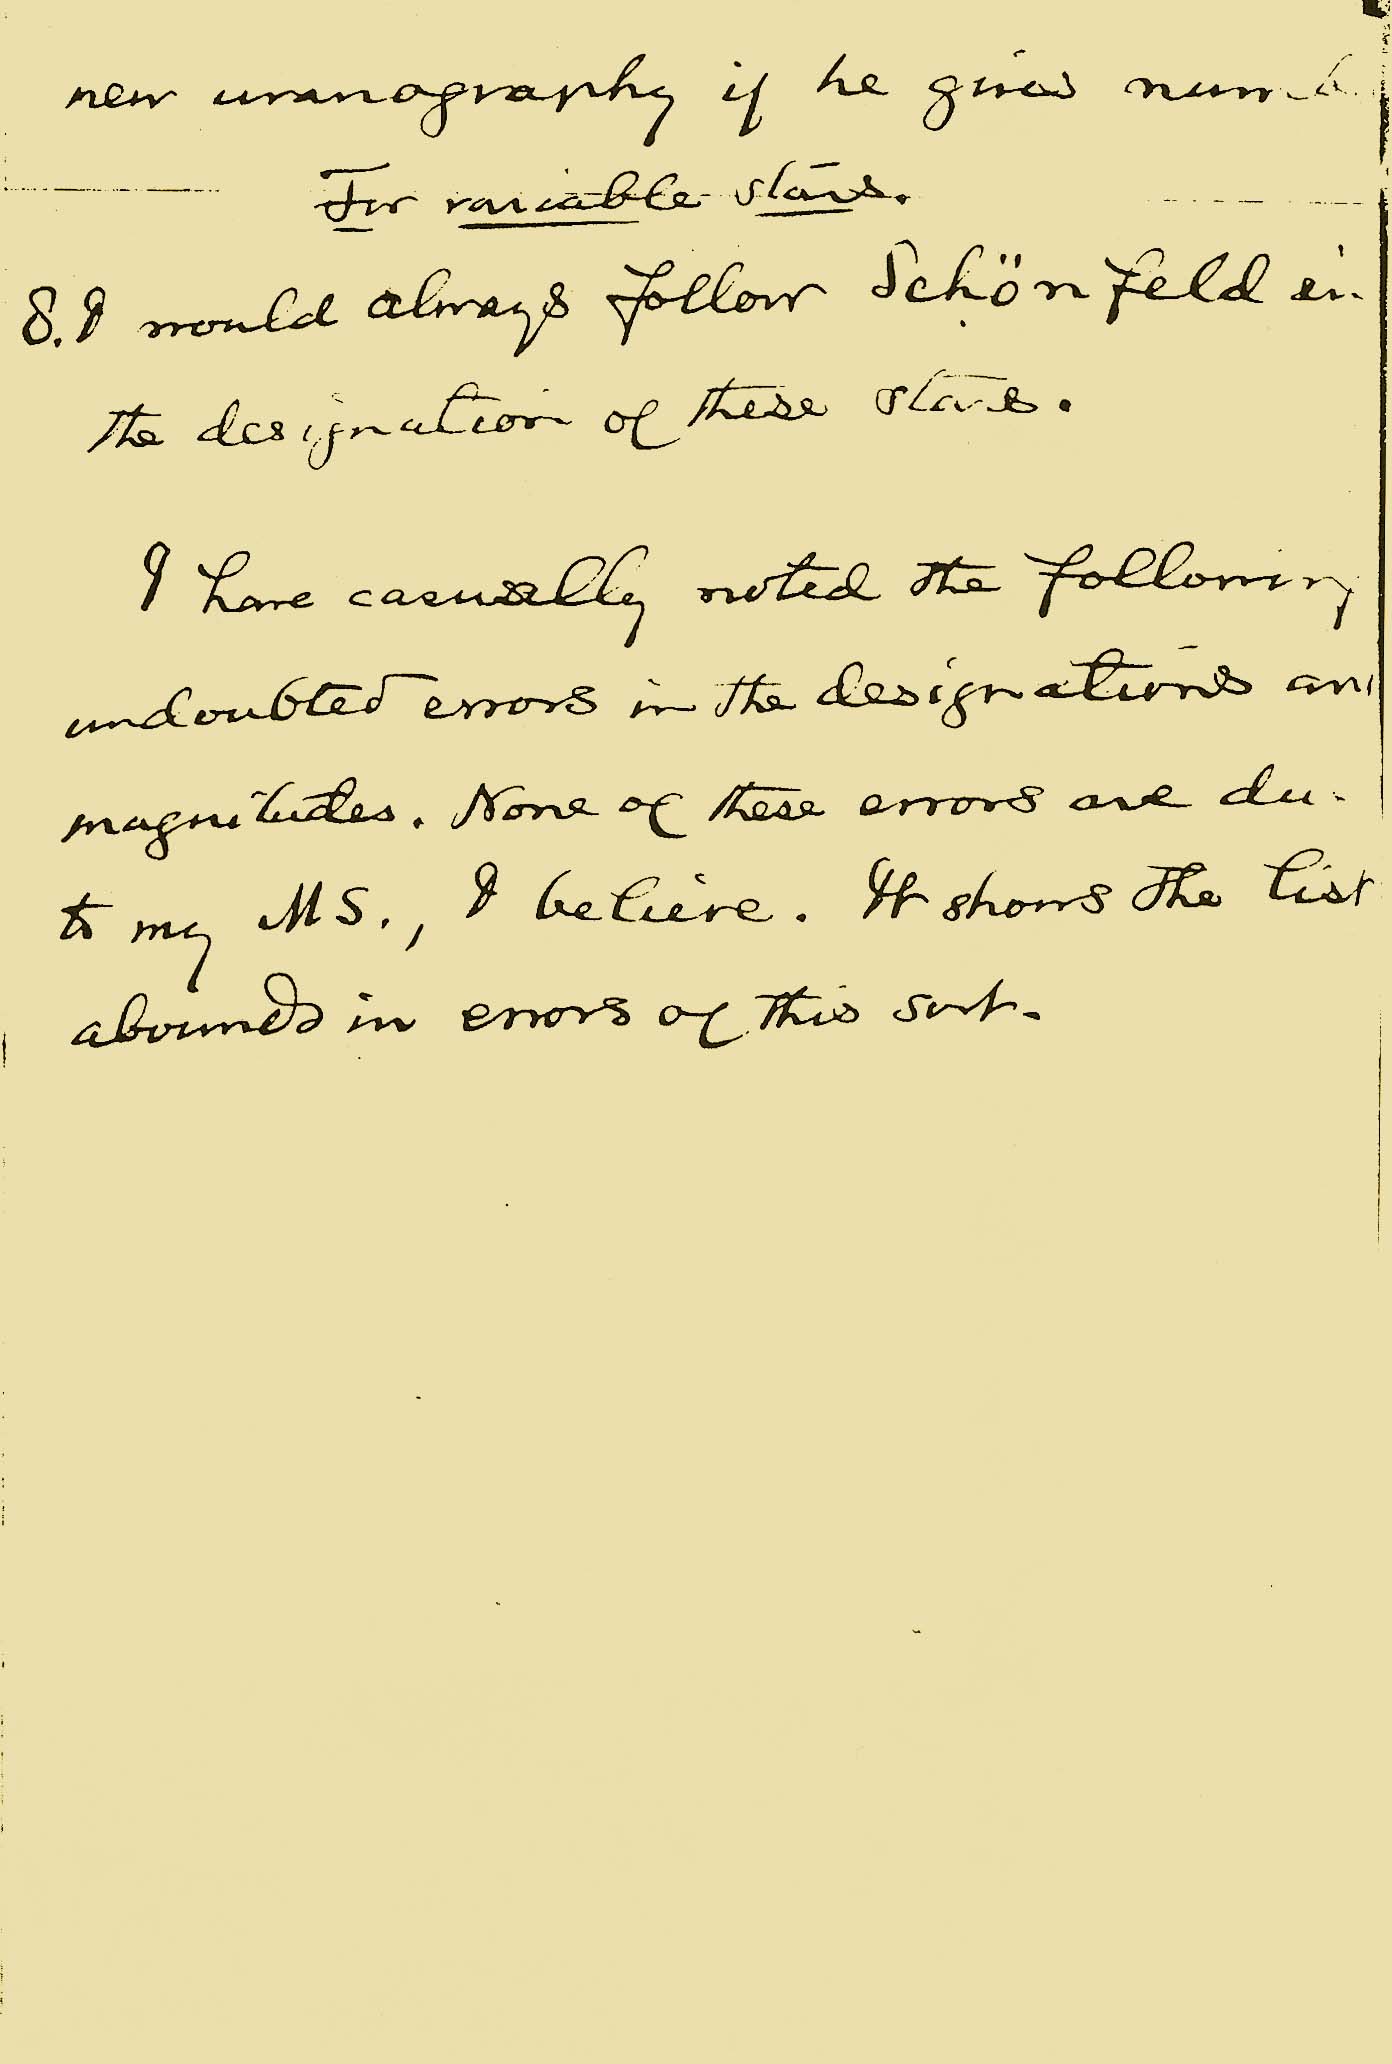 new uranography if he gives numb
For variable stars.
8. I would always follow Schönfeld in
the designation of these stars.
I have casually noted the following
undoubted errors in the designations an
magnitudes. None of these errors are du
to my MS., I believe. It shows the list
abounds in errors of this sort.